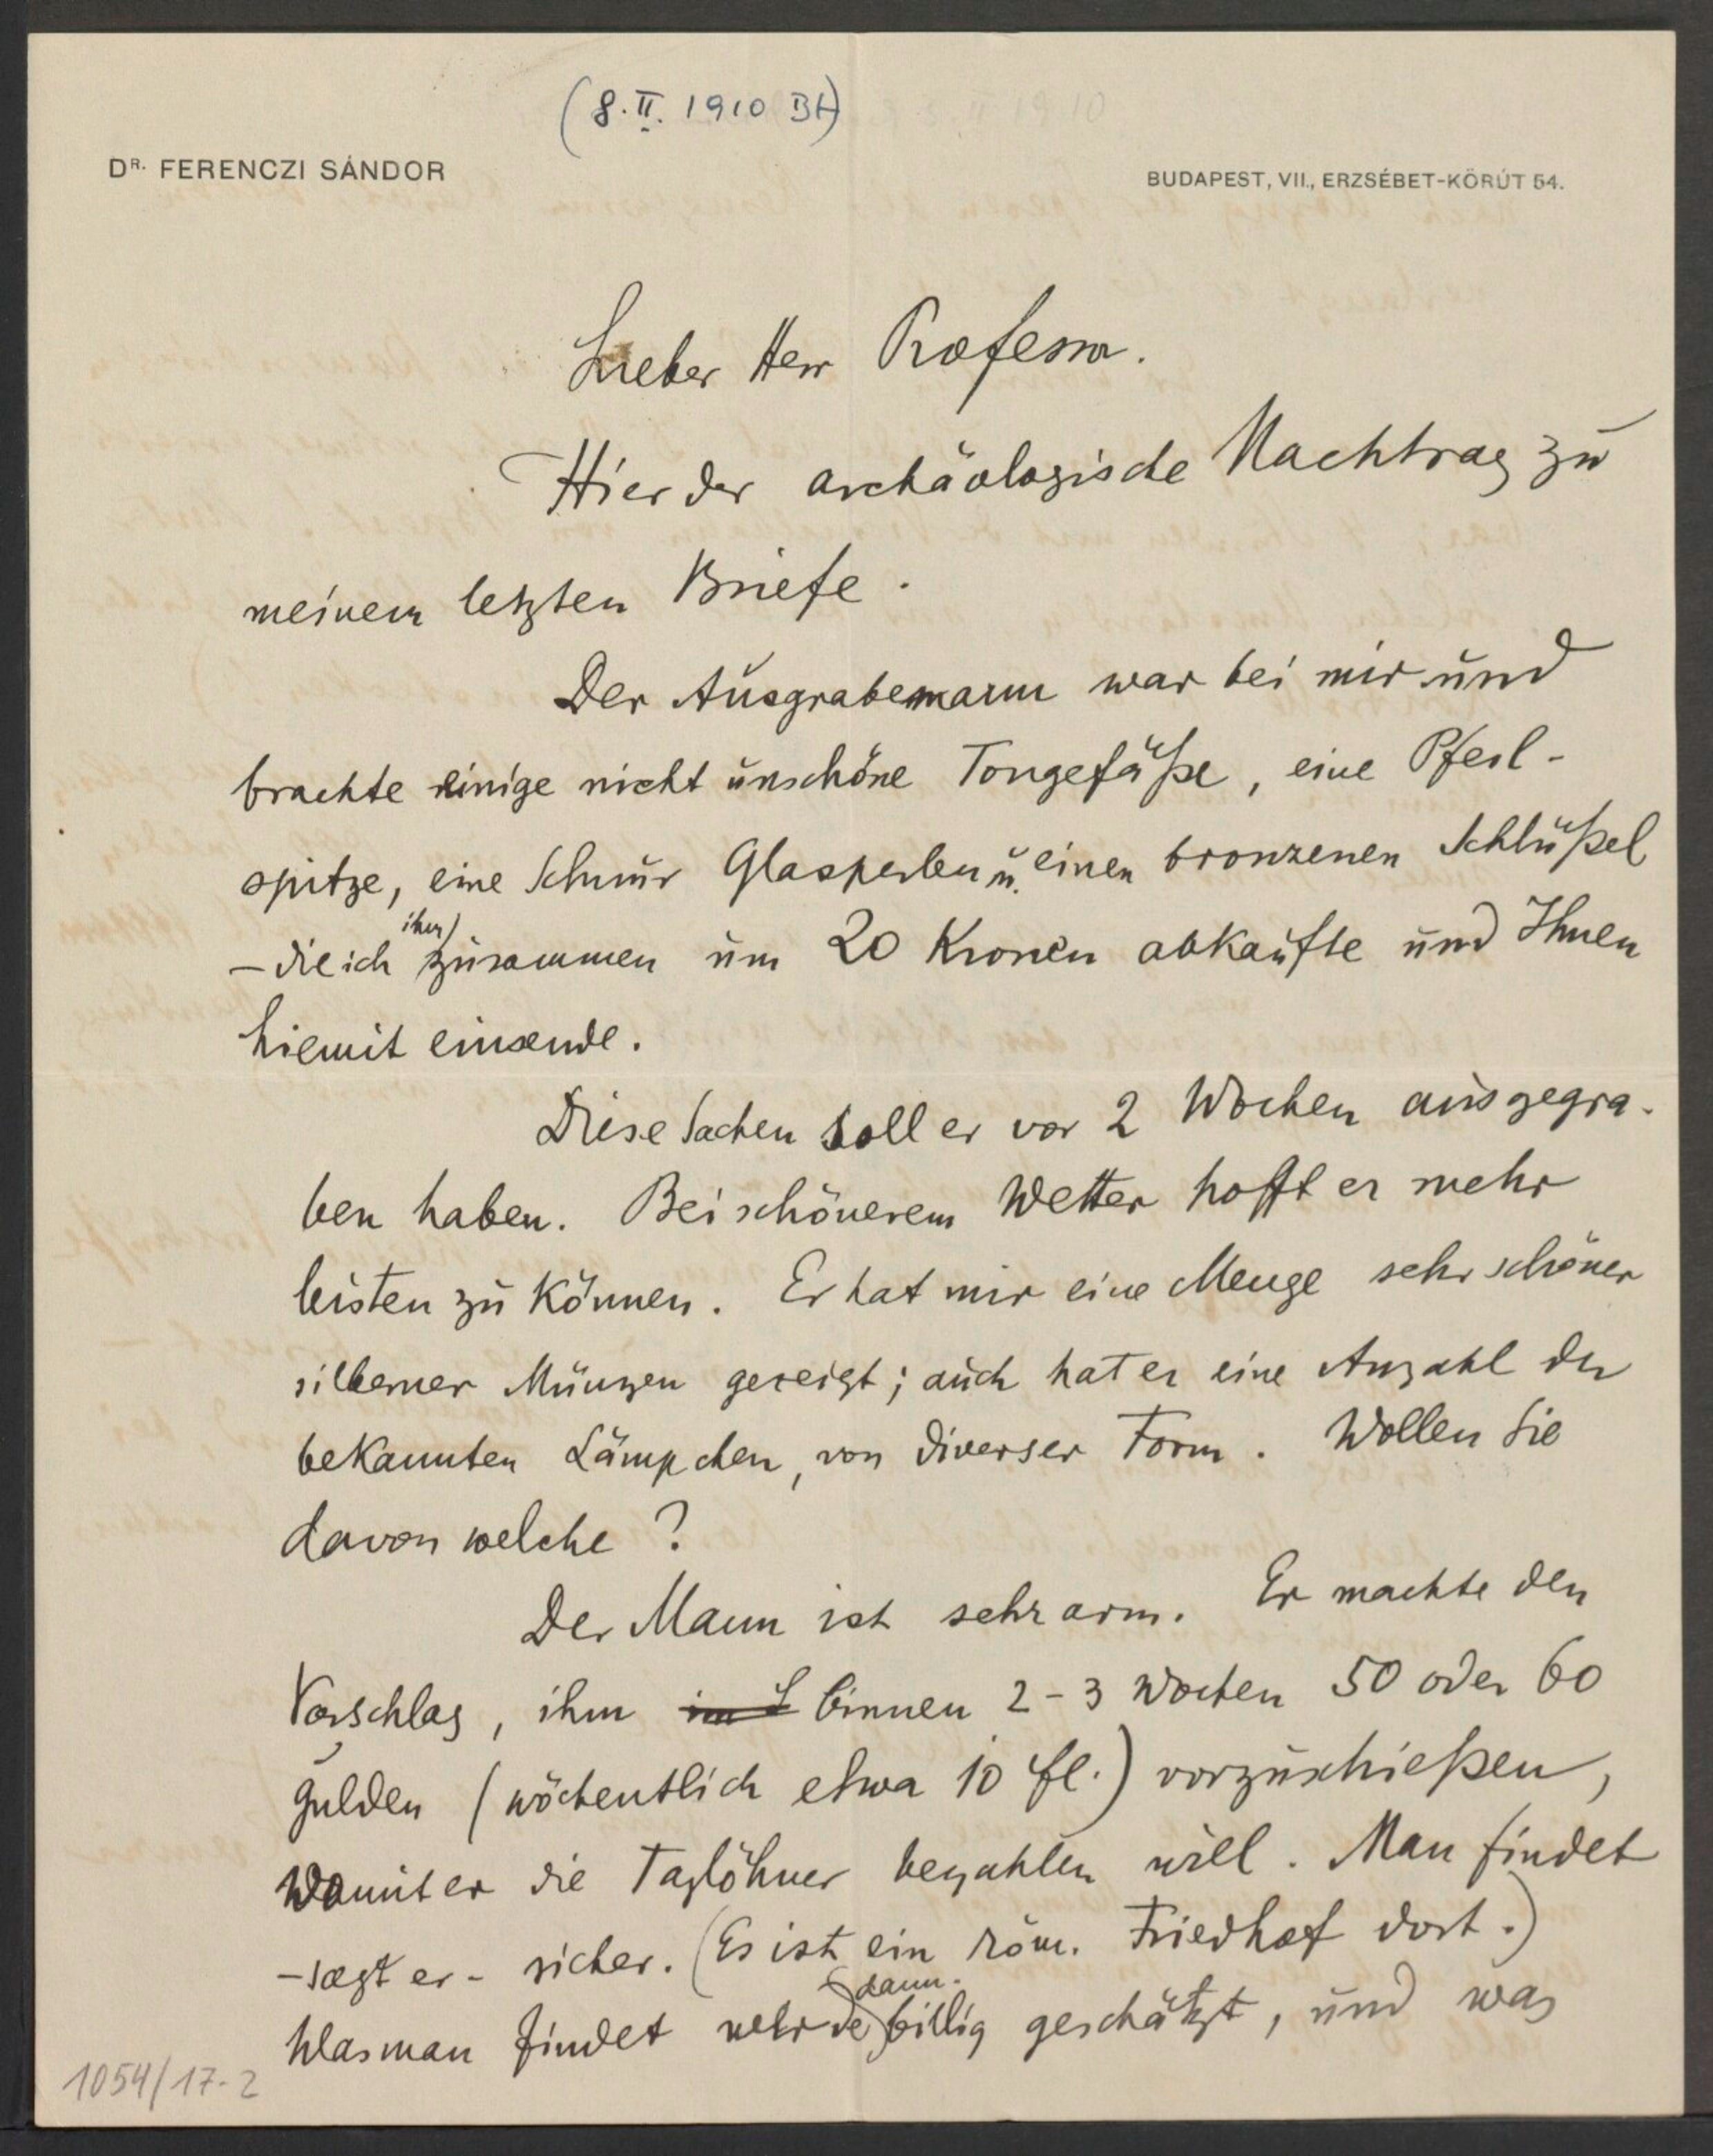 (8.II. 1910 BH)
DR. FERENCZI SÁNDOR
BUDAPEST, VII., ERZSÉBET-KÖRÚT 54.
Lieber Herr Professor.
Hier der archäologische Nachtrag zu
meinem letzten Briefe.
Der Ausgrabemann war bei mir und
brachte einige nicht unschöne Tongefäße, eine Pfeil-
spitze, eine Schnur Glasperlen u. einen bronzenen Schlüßel
– die ich ihm zusammen um 20 Kronen abkaufte und Ihnen
hiemit einsende.
Diese Sachen soll er vor 2 Wochen ausgegra-
ben haben. Bei schönerem Wetter hofft er mehr
leisten zu können. Er hat mir eine Menge sehr schöner
silberner Münzen gezeigt; auch hat er eine Anzahl der
bekannten Lämpchen, von diverser Form. Wollen Sie
davon welche?
Der Mann ist sehr arm. Er machte den
Vorschlag, ihm binnen 2-3 Wochen 50 oder 60
Gulden (wöchentlich etwa 10 fl.) vorzuschießen,
womit er die Taglöhner bezahlen will. Man findet
– sagt er – sicher. (Es ist ein röm. Friedhof dort.)
Was man findet werde dann billig geschätzt, und was
1054/17-2